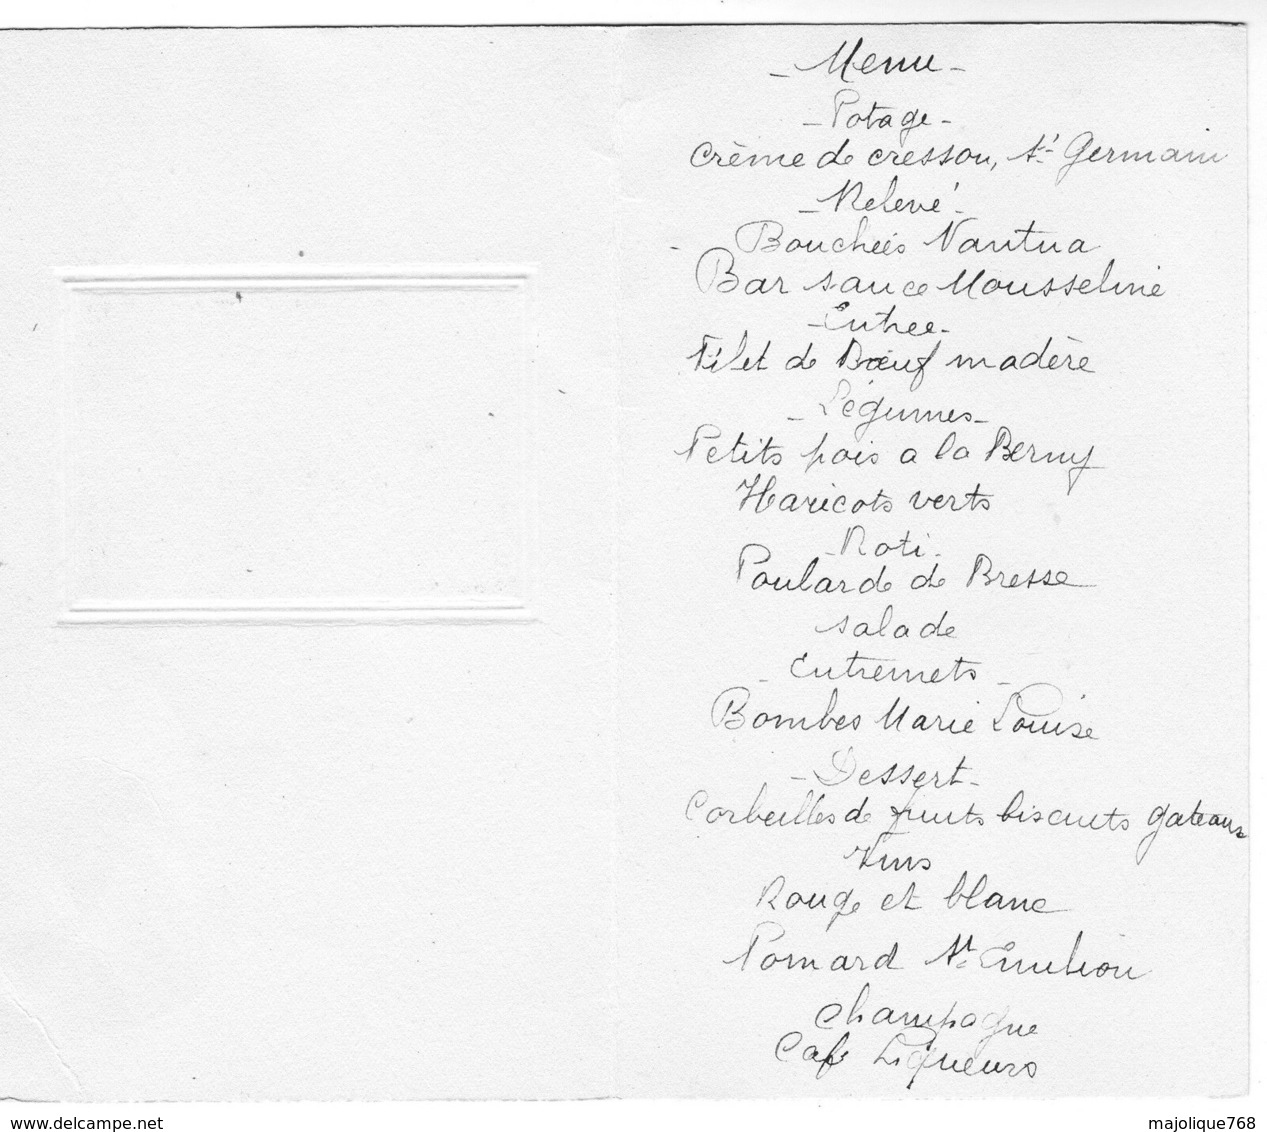 - Menu -
- Potage -
Crème de cresson, St Germain
- Relevé -
- Bouchées Nantua
Bar sauce Mousseline
- Entree -
Filet de Bœuf madère
- Légumes -
Petits pois a la Berny
Haricots verts
- Roti -
Poularde de Bresse
salade
- Entremets -
Bombes Marie Louise
- Dessert -
Corbeilles de fruits biscuits gateaux
Vins
Rouge et blanc
Pomard St Emilion
Champagne
Café Liqueurs
www.delcampe.net
majolique768